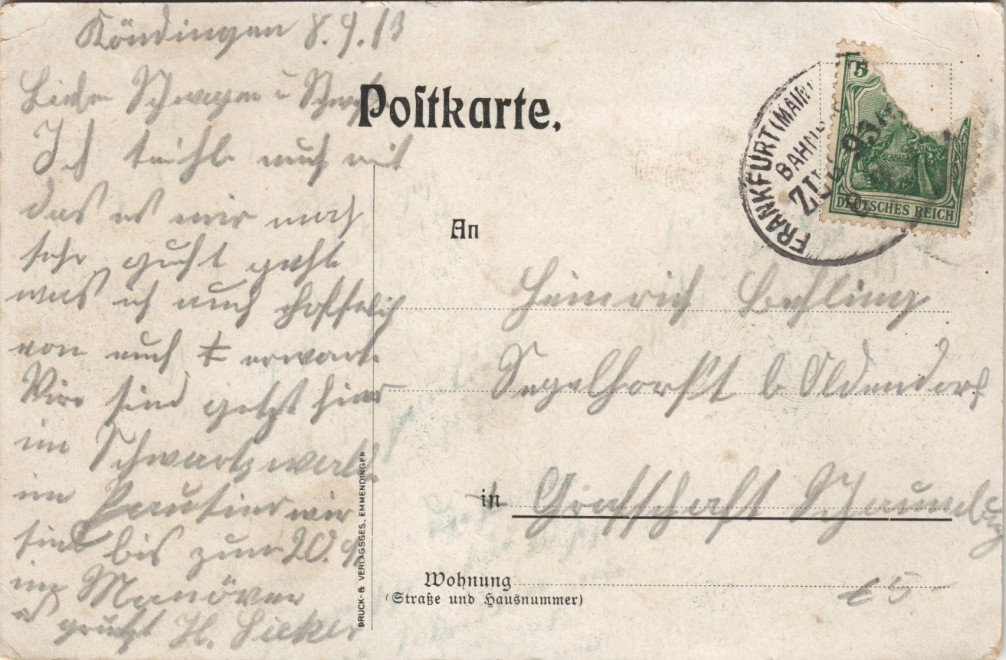 Köndingen 8.9.13
Liebe Schwager u Schw
Ich teihle euch mit
das es mir noch
sehr guht geht
was ich auch hoffelich
von euch erwarte
Wire sind getzt hier
im Schwartzwalt
im wir
sind bis zum 20.9
im Manöver
es grützt H. Lieker
Postkarte.
FRANKFURT (MAIN)
BAHN
ZUG
5
DEUTSCHES REICH
An
Heinrich Behling
Segelhorst b Oldendorf
in Grafschaft Schaumburg
Wohnung
(Straße und Hausnummer)
DRUCK- & VERLAGSGES., EMMENDINGEN